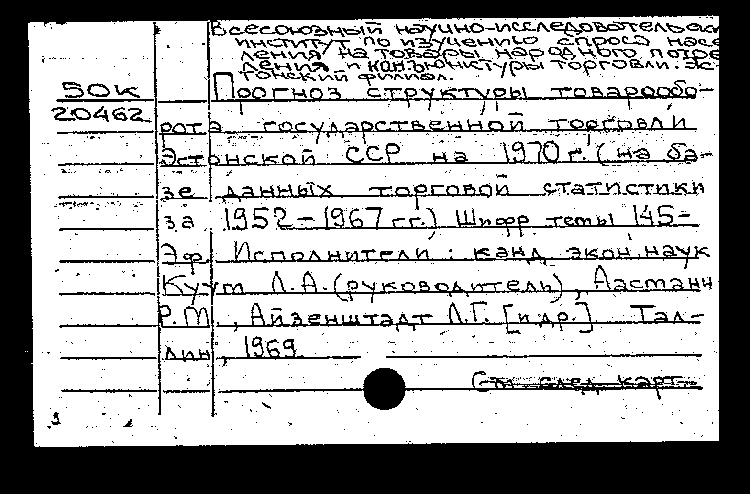 Всесоюзный научно-исследовательск
институт по изучению спроса насе
ления на товары народного потре
ления и конъюнктуры торговли. Эс
тонский филиал.
50К
20462
Прогноз структуры товарообо-
рота государственной торговли
Эстонской ССР на 1970 г. (на ба-
зе данных торговой статистики
за 1952-1967 гг.) Шифр темы 145-
Эф. Исполнители: канд. экон. наук
Куум Л.А. (руководитель), Аастанн
Р.М., Айзенштадт Л.Г. [и др.] Тал-
лин, 1969.
См. след. карт.